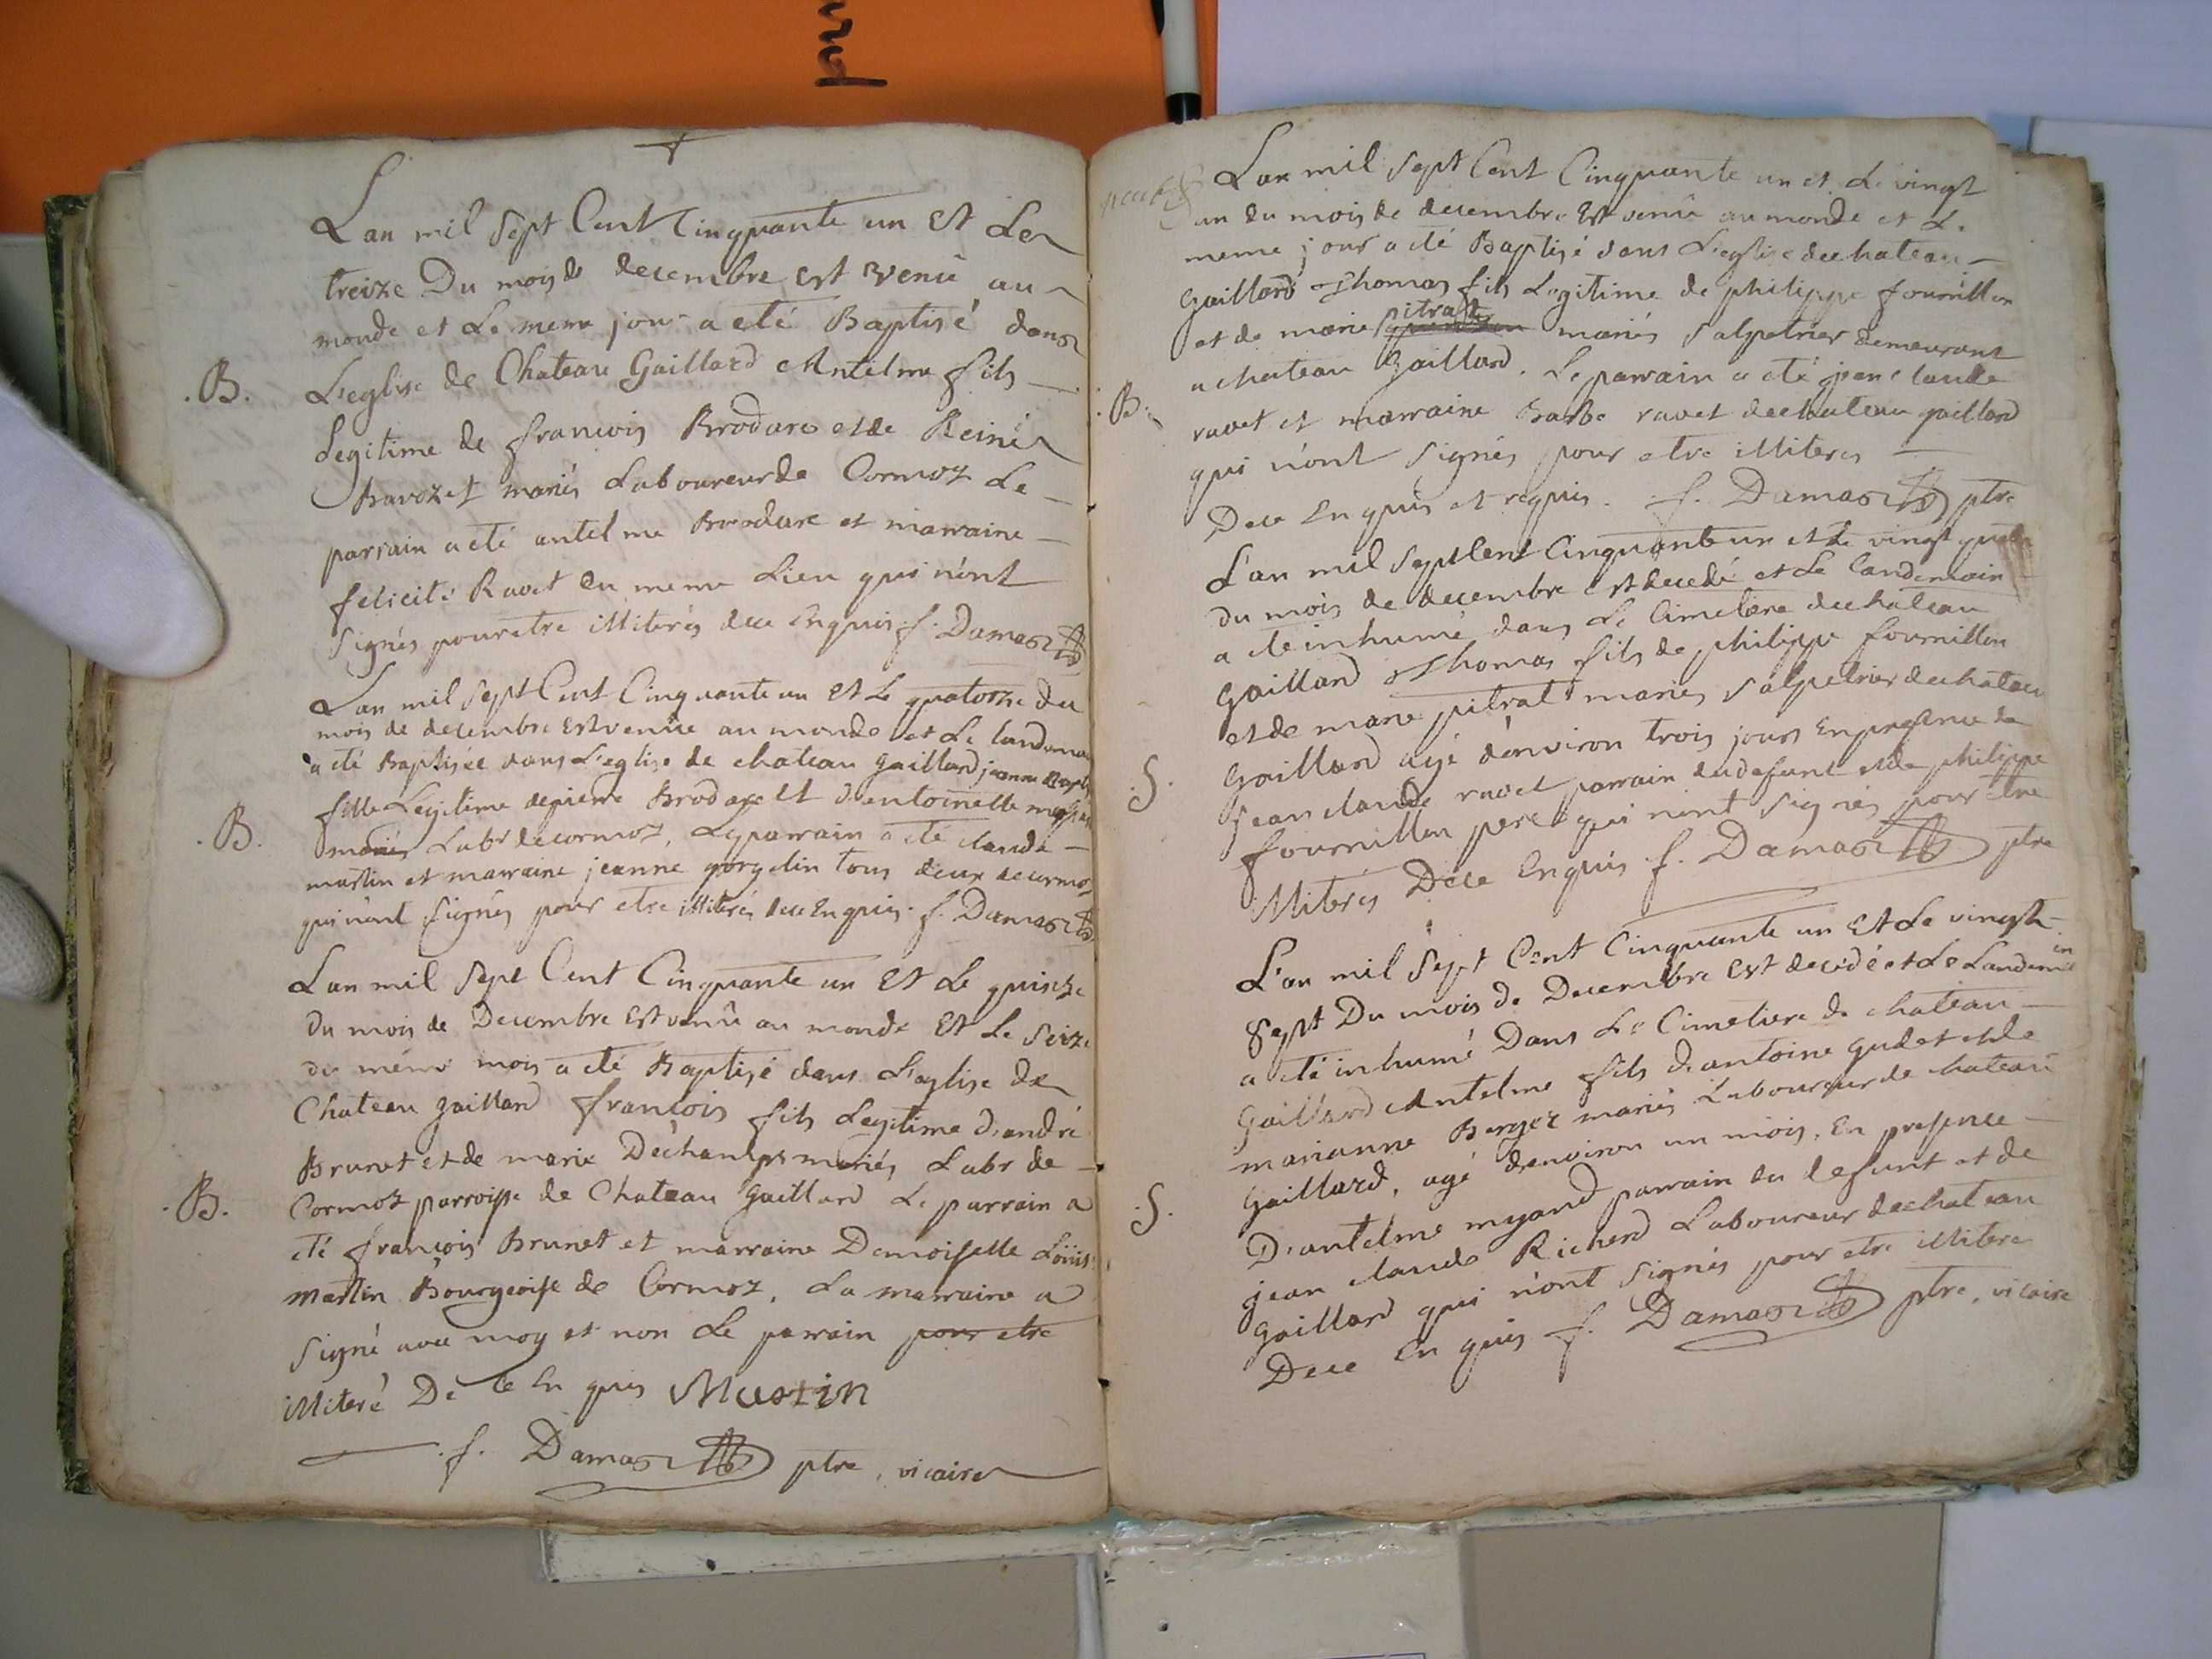 Lan mil sept Cent Cinquante un Et Le
treize Du mois de decembre est venû au
monde et Le meme jour a eté Baptisé dans
.B. L'eglise de Chateau Gaillard Antelme fils
Legitime de francois Brodare et de Reine
Bavozet mariés Laboureur de Cormoz Le
parrain a eté antelme Brodare et marraine
felicité Ravet du meme Lieu qui n'ont
signés pour etre illiterés de ce Enquis f. Damas
Lan mil sept Cent Cinquante un Et Le quatorze du
mois de decembre Est venüe au monde et Le landemain
a eté Baptisée dans L'eglise de chateau gaillard jeanne
fille Legitime de pierre Brodare Et d'antoinette
.B. mariés Labr de cormoz, Le parrain a eté claude
martin et marraine jeanne gorgelin tous deux de cormoz
qui n'ont signés pour etre illiterés de ce Enquis. f. Damas
Lan mil sept Cent Cinquante un Et Le quinze
du mois de Decembre Est venû au monde Et Le seize
du méme mois a eté Baptisé dans L'eglise de
Chateau gaillard francois fils Legitime d'andré
Brunet et de marie Dèchamps mariés Labr de
.B. Cormoz parroisse de Chateau Gaillard Le parrain a
eté francois Brunet et marraine Demoiselle Loüise
martin Bourgeoise de Cormoz, La marraine a
signé avec moy et non Le parrain pour etre
illiteré De ce En quis Martin
f. Damas ptre, vicaire
Lan mil sept Cent Cinquante un et Le vingt
un du mois de decembre Est venû au monde et Le
meme jour a eté Baptisé dans L'eglise de chateau
Gaillard Thomas fils Legitime de philippe fournillon
pitrat
et de marie mariés salpetrier demeurant
a chateau Gaillard. Le parrain a eté jean claude
.B. ravet et marraine Barbe ravet de chateau gaillard
qui n'ont signés pour etre illiteres
De ce Enquis et requis. f. Damas ptre
L'an mil sept Cent Cinquante un et Le vingt quatre
du mois de decembre est decedé et Le landemain
a eté inhumé dans Le Cimetiere de chateau
Gaillard Thomas fils de philippe fournillon
et de marie pitrat mariés salpetrier de chateau
Gaillard agé d'environ trois jours En presence de
.S. jean claude ravet parrain du defunt et de philippe
fournillon pere qui n'ont signés pour etre
illiterés De ce Enquis f. Damas ptre
L'an mil sept Cent Cinquante un Et Le vingt
in
sept Du mois de Decembre Est decedé et Le Landema
a eté inhumé Dans Le Cimetiere de chateau
Gaillard Antelme fils d'antoine gudet et de
marianne Berger mariés Laboureur de chateau
Gaillard, agé d'environ un mois, En presence
.S. D'antelme myand parrain du defunt et de
jean claude Richerd Laboureur de chateau
Gaillard qui n'ont signés pour etre illitere
De ce En quis f. Damas ptre, vicaire